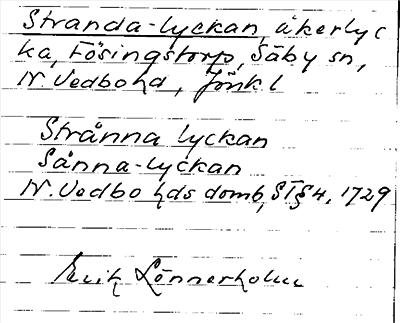 Stranda-lyckan, åkerlyc
ka, Fösingstorp, Säby sn,
N. Vedbo hd, Jönk l
Strånna lyckan
Sånna-lyckan
N. Vedbo hds domb, § 4, 1729
Erik Lönnerholm